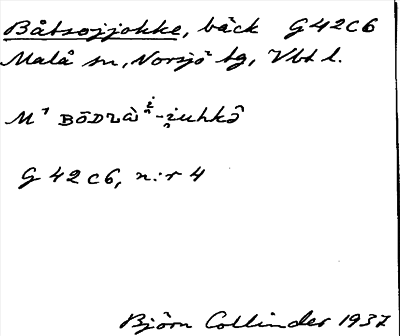 Båtsojjokke, bäck G42C6
Malå sn, Norsjö tg, Vbt l.
G 42 c6, n:r 4
Björn Collinder 1937